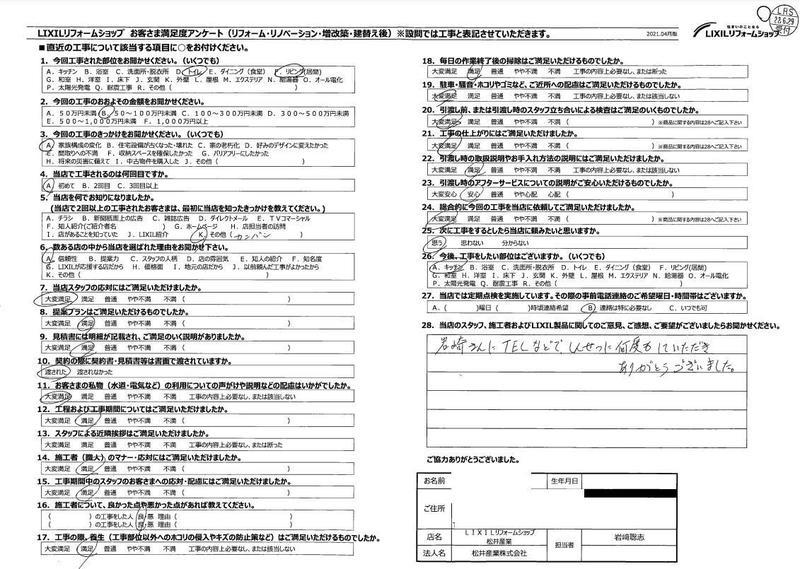 LRS
22.6.29
受付
LIXILリフォームショップ お客さま満足度アンケート（リフォーム・リノベーション・増改築・建替え後）※設問では工事と表記させていただきます。
2021.04月版
住まいのことなら
LIXILリフォームショップ
■直近の工事について該当する項目に○をお付けください。
1．今回工事された部位をお聞かせください。（いくつでも）
A．キッチン B．浴室 C．洗面所・脱衣所 D．トイレ E．ダイニング（食堂） F．リビング(居間)
G．和室 H．洋室 I．床下 J．玄関 K．外壁 L．屋根 M．エクステリア N．給湯器 O．オール電化
P．太陽光発電 Q．耐震工事 R．その他（ ）
2．今回の工事のおおよその金額をお聞かせください。
A．50万円未満 B．50～100万円未満 C．100～300万円未満 D．300～500万円未満
E．500～1,000万円未満 F．1,000万円以上
3．今回の工事のきっかけをお聞かせください。（いくつでも）
A．家族構成の変化 B．住宅設備が古くなった・壊れた C．家の老朽化 D．好みのデザインに変えたかった
E．間取りへの不満 F．収納スペースを確保したかった G．バリアフリーにしたかった
H．将来の災害に備えて I．中古物件を購入した J．その他（ ）
4．当店で工事されるのは何回目ですか。
A．初めて B．2回目 C．3回目以上
5．当店を何でお知りになりましたか。
（当店で2回以上の工事されたお客さまは、最初に当店を知ったきっかけを教えてください。）
A．チラシ B．新聞紙面上の広告 C．雑誌広告 D．ダイレクトメール E．TVコマーシャル
F．知人紹介（ご紹介者名 ） G．ホームページ H．店担当者の訪問
I．店があることを知っていた J．LIXIL紹介 K．その他（カンバン ）
6．数ある店の中から当店を選ばれた理由をお聞かせ下さい。
A．信頼性 B．提案力 C．スタッフの人柄 D．店の雰囲気 E．知人の紹介 F．知名度
G．LIXILが応援する店だから H．価格面 I．地元の店だから J．以前頼んだ工事がよかったから
K．その他（ ）
7．当店スタッフの応対にはご満足いただけましたか。
大変満足 満足 普通 やや不満 不満（ ）
8．提案プランはご満足いただけるものでしたか。
大変満足 満足 普通 やや不満 不満（ ）
9．見積書には明細が記載され、ご満足のいく説明がありましたか。
大変満足 満足 普通 やや不満 不満（ ）
10．契約の際に契約書・見積書等は書面で渡されていますか。
渡された 渡されなかった
11．お客さまの私物（水道・電気など）の利用についての声がけや説明などの配慮はいかがでしたか。
大変満足 満足 普通 やや不満 不満 工事の内容上必要なし、または該当しない
12．工程および工事期間についてはご満足いただけましたか。
大変満足 満足 普通 やや不満 不満（ ）
13．スタッフによる近隣挨拶はご満足いただけましたか。
大変満足 満足 普通 やや不満 不満 工事の内容上必要なし、または断った
14．施工者（職人）のマナー・応対にはご満足いただけましたか。
大変満足 満足 普通 やや不満 不満（ ）
15．工事期間中のスタッフのお客さまへの応対・配慮にはご満足いただけましたか。
大変満足 満足 普通 やや不満 不満（ ）
16．施工者について、良かった点や悪かった点があれば教えてください。
（ ）の工事をした人 良・悪 理由（ ）
（ ）の工事をした人 良・悪 理由（ ）
17．工事の際、養生（工事部位以外へのホコリの侵入やキズの防止策など）はご満足いただけるものでしたか。
大変満足 満足 普通 やや不満 不満 工事の内容上必要なし、または該当しない
18．毎日の作業終了後の掃除はご満足いただけるものでしたか。
大変満足 満足 普通 やや不満 不満 工事の内容上必要なし、または断った
19．駐車・騒音・ホコリやゴミなど、ご近所への配慮はご満足いただけるものでしたか。
大変満足 満足 普通 やや不満 不満 工事の内容上必要なし、または該当しない
20．引渡し前、または引渡し時のスタッフ立ち合いによる検査はご満足のいくものでしたか。
大変満足 満足 普通 やや不満 不満（ ）※商品に関する内容は28へご記入下さい
21．工事の仕上がりにはご満足いただけましたか。
大変満足 満足 普通 やや不満 不満（ ）※商品に関する内容は28へご記入下さい
22．引渡し時の取扱説明やお手入れ方法の説明にはご満足いただけましたか。
大変満足 満足 普通 やや不満 不満 工事の内容上必要なし、または該当しない
23．引渡し時のアフターサービスについての説明がご安心いただけるものでしたか。
大変安心 安心 普通 やや心配 心配（ ）
24．総合的に今回の工事を当店に依頼してご満足いただけましたか。
大変満足 満足 普通 やや不満 不満（ ）※商品に関する内容は28へご記入下さい
25．次に工事をするとしたら当店に頼みたいと思いますか。
思う 思わない 分からない
26．今後、工事をしたい部位はございますか。（いくつでも）
A．キッチン B．浴室 C．洗面所・脱衣所 D．トイレ E．ダイニング（食堂） F．リビング(居間)
G．和室 H．洋室 I．床下 J．玄関 K．外壁 L．屋根 M．エクステリア N．給湯器 O．オール電化
P．太陽光発電 Q．耐震工事 R．その他（ ）
27．当店では定期点検を実施しています。その際の事前電話連絡のご希望曜日・時間帯はございますか。
A．（ ）曜日（ ）時頃連絡希望 B．連絡は特に必要なし C．いつでも可
28．当店のスタッフ、施工者およびLIXIL製品に関してのご意見、ご感想、ご要望がございましたらお聞かせください。
岩崎さんにTELなどでしんせつに何度もしていただき
ありがとうございました。
ご協力ありがとうございました。
お名前
生年月日
ご住所
店名 LIXILリフォームショップ 松井産業
担当者 岩﨑聡志
法人名 松井産業株式会社